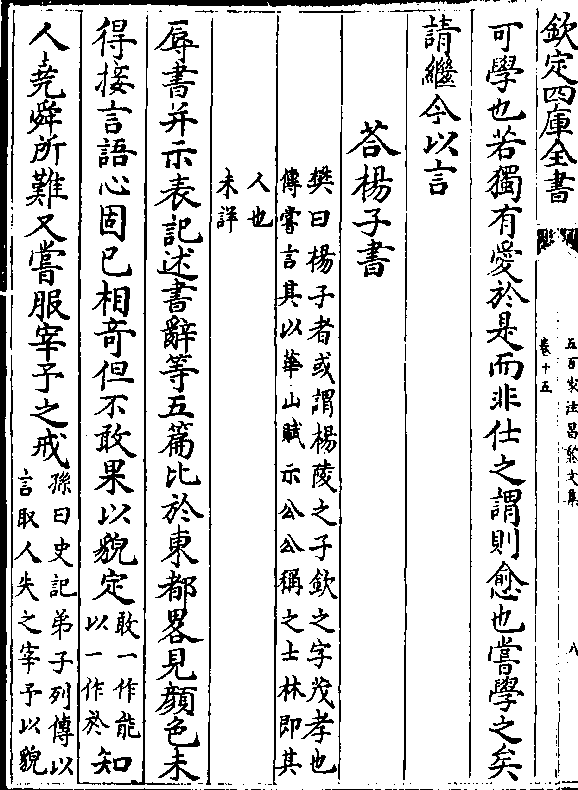 欽定四庫全書
五百家注昌黎文集
卷十五
八
可學也若獨有愛於是而非仕之謂則愈也嘗學之矣
請繼今以言
荅楊子書
樊曰楊子者或謂楊陵之子欽之字茂孝也
傳嘗言其以華山賦示公公稱之士林即其
人也
未詳
辱書并示表記述書辭等五篇比於東都畧見顔色未
得接言語心固已相竒但不敢果以貌定
敢一作能
以一作於
知
人堯舜所難又嘗服宰予之戒
孫曰史記弟子列傳以
言取人失之宰予以貌